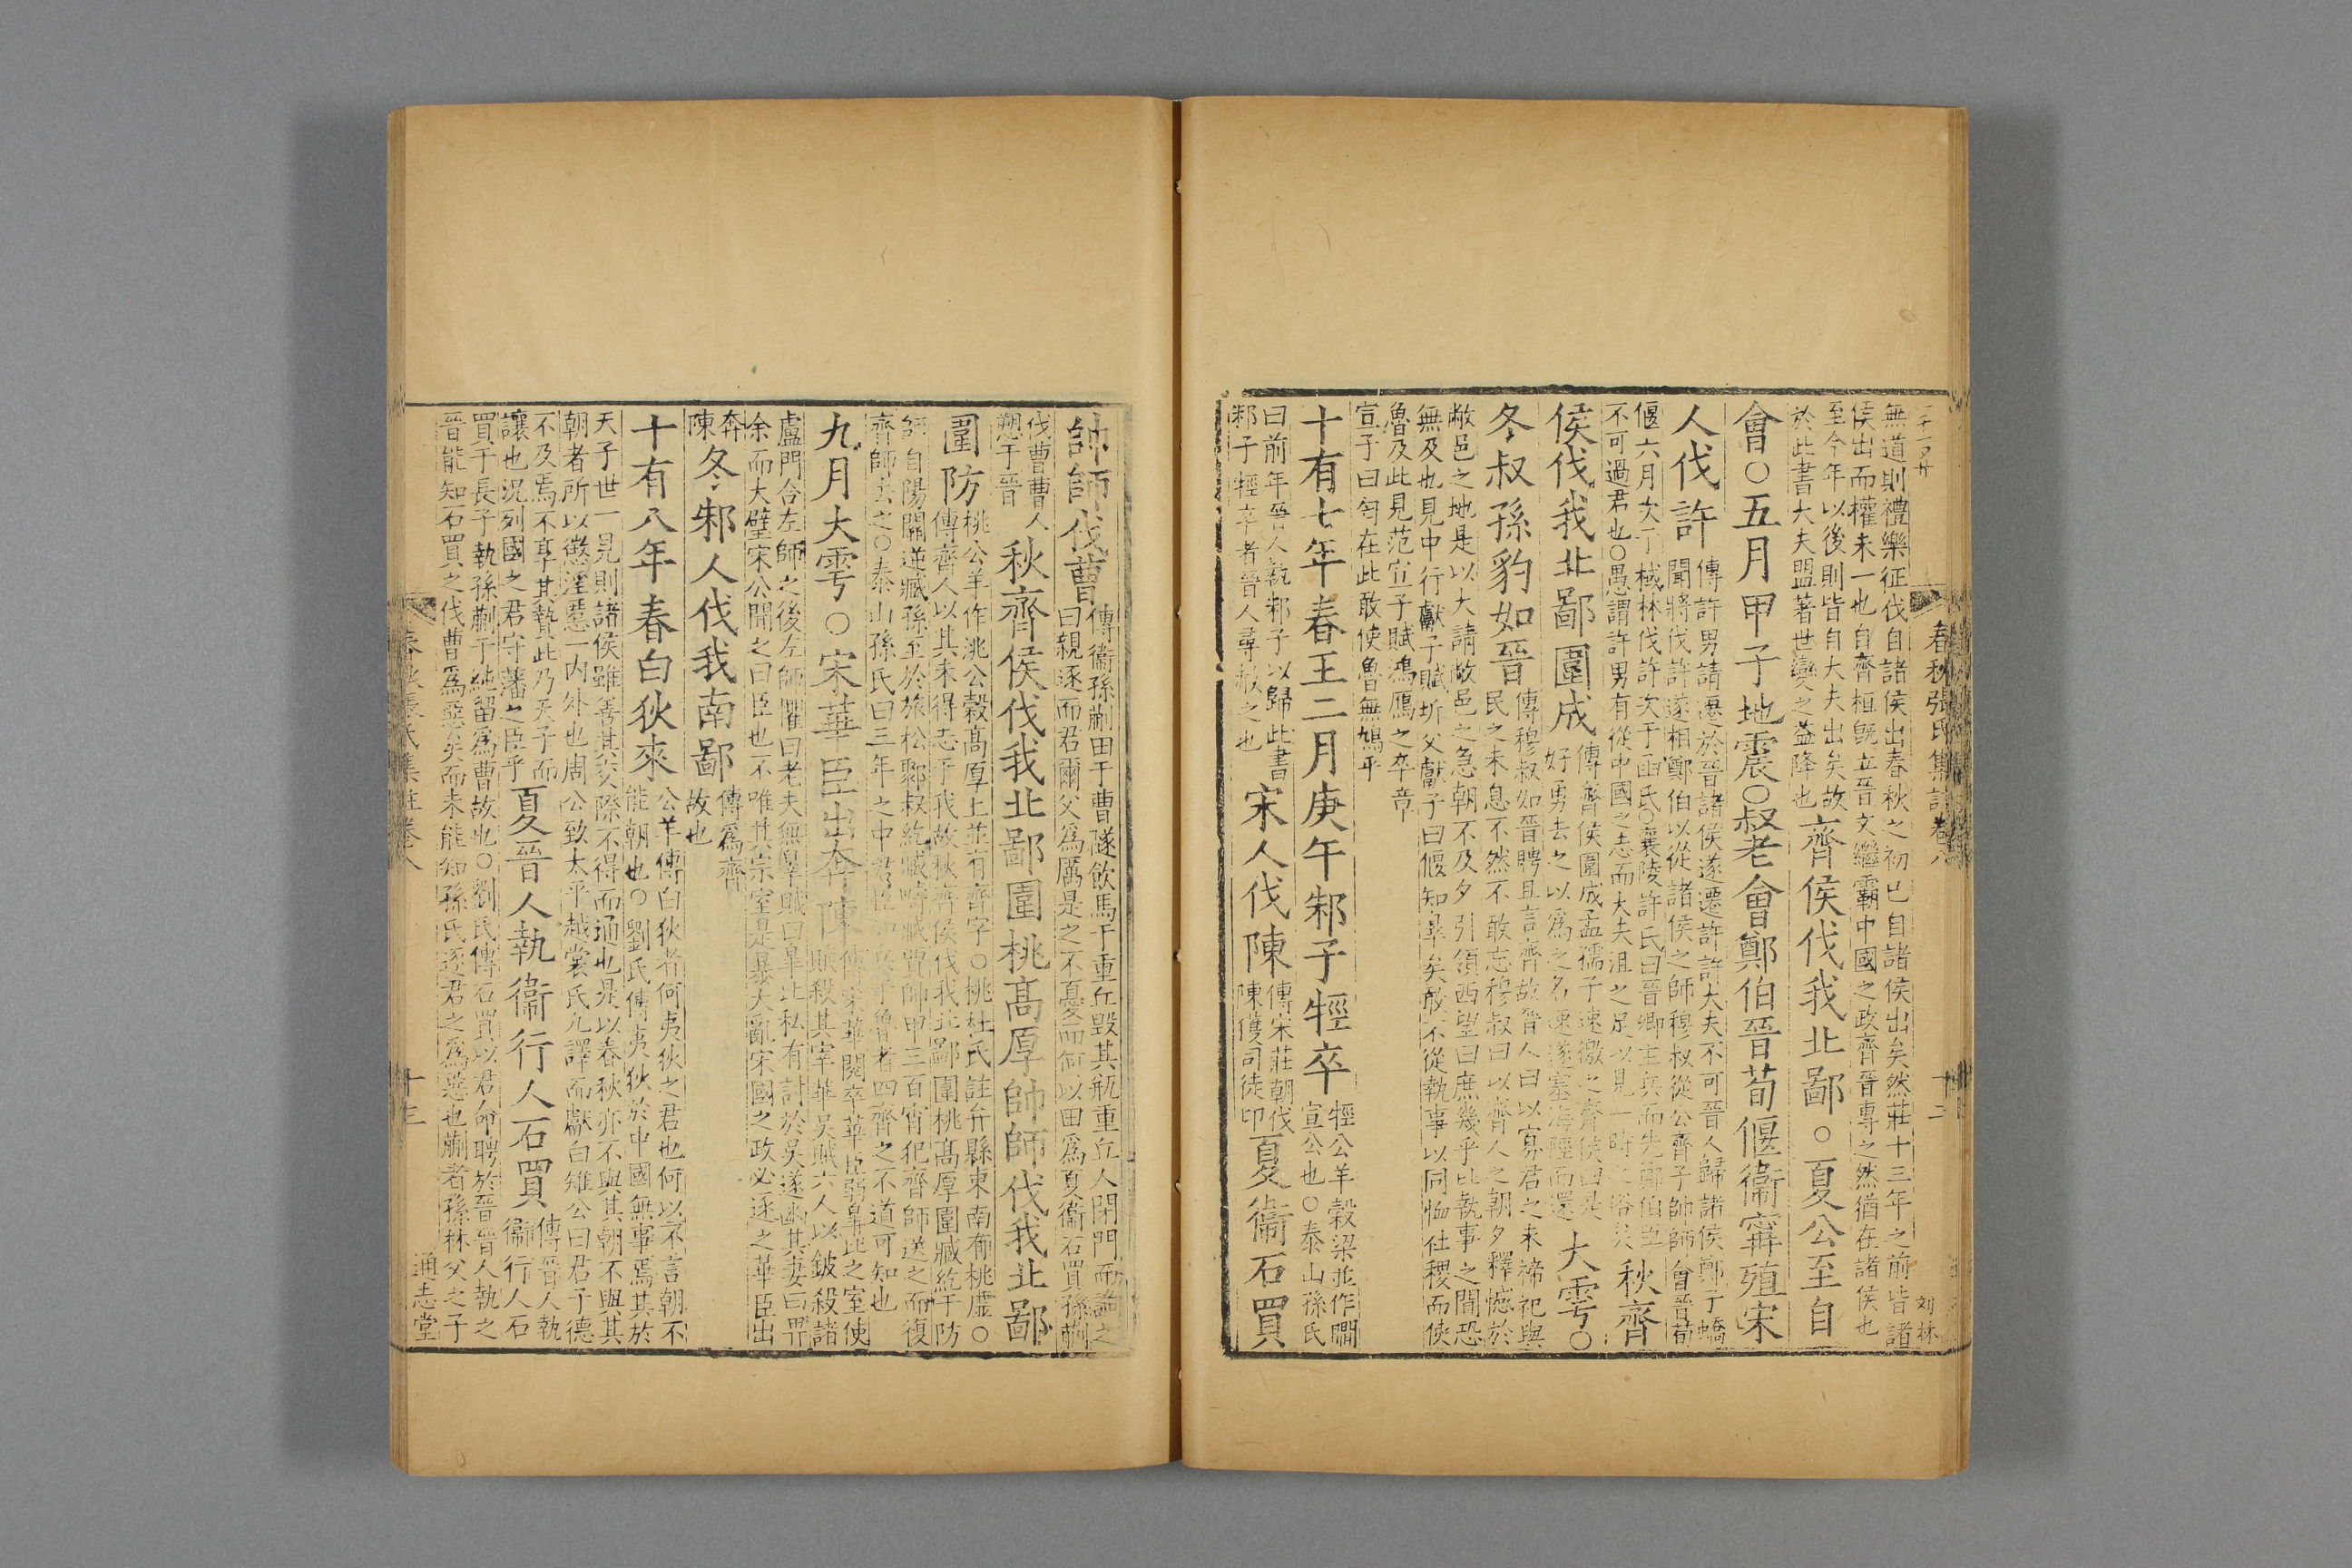 春秋張氏集註卷八
十二
刘林
無道則禮樂征伐自諸侯出春秋之初已自諸侯出矣然莊十三年之前皆諸
侯出而權未一也自齊桓旣立晉文繼霸中國之政齊晉專之然猶在諸侯也
至今年以後則皆自大夫出矣故
於此書大夫盟著世變之益降也
齊侯伐我北鄙○夏公至自
會○五月甲子地震○叔老會鄭伯晉荀偃衞甯殖宋
人伐許
傳許男請遷於晉諸侯遂遷許許大夫不可晉人歸諸侯鄭子蟜
聞將伐許遂相鄭伯以從諸侯之師穆叔從公齊子帥師會晉荀
偃六月次于棫林伐許次于函氏○襄陵許氏曰晉卿主兵而先鄭伯臣
不可過君也○愚謂許男有從中國之志而大夫沮之足以見一時之俗矣
秋齊
侯伐我北鄙圍成
傳齊侯圍成孟孺子速徼之齊侯曰是
好勇去之以爲之名速遂塞海陘而還
大雩○
冬叔孫豹如晉
傳穆叔如晉聘且言齊故晉人曰以寡君之未禘祀與
民之未息不然不敢忘穆叔曰以齊人之朝夕釋憾於
敝邑之地是以大請敝邑之急朝不及夕引領西望曰庶幾乎比執事之間恐
無及也見中行獻子賦圻父獻子曰偃知辠矣敢不從執事以同恤社稷而使
魯及此見范宣子賦鴻鴈之卒章
宣子曰匄在此敢使魯無鳩乎
十有七年春王二月庚午邾子牼卒
牼公羊穀梁並作瞷
宣公也○泰山孫氏
曰前年晉人執邾子以歸此書
邾子牼卒者晉人尋赦之也
宋人伐陳
傳宋莊朝伐
陳獲司徒卬
夏衞石買
帥師伐曹
傳衞孫蒯田于曹隧飲馬于重丘毀其瓶重丘人閉門而詢之
曰親逐而君爾父爲厲是之不憂而何以田爲夏衞石買孫蒯
伐曹曹人
愬于晉
秋齊侯伐我北鄙圍桃高厚帥師伐我北鄙
圍防
桃公羊作洮公穀高厚上並有齊字○桃杜氏註弁縣東南有桃虛○
傳齊人以其未得志于我故秋齊侯伐我北鄙圍桃高厚圍臧紇于防
師自陽關逆臧孫至於旅松郰叔紇臧疇臧賈帥甲三百宵犯齊師送之而復
齊師去之○泰山孫氏曰三年之中君臣加兵于魯者四齊之不道可知也
九月大雩○宋華臣出奔陳
傳宋華閱卒華臣弱臯比之室使
賊殺其宰華吳賊六人以鈹殺諸
盧門合左師之後左師懼曰老夫無辠賊曰臯比私有討於吳遂幽其妻曰畀
余而大璧宋公聞之曰臣也不唯其宗室是暴大亂宋國之政必逐之華臣出
奔
陳
冬邾人伐我南鄙
傳爲齊
故也
十有八年春白狄來
公羊傳白狄者何夷狄之君也何以不言朝不
能朝也○劉氏傳夷狄於中國無事焉其於
天子世一見則諸侯雖善其交際不得而通也是以春秋亦不與其朝不與其
朝者所以懲淫慝一内外也周公致太平越裳氏九譯而獻白雉公曰君子德
不及焉不享其贄此乃天子而
讓也況列國之君守藩之臣乎
夏晉人執衞行人石買
傳晉人執
衞行人石
買于長子執孫蒯于純留爲曹故也○劉氏傳石買以君命聘於晉晉人執之
晉能知石買之伐曹爲惡矣而未能知孫氏逐君之爲惡也蒯者孫林父之子
春秋張氏集註卷八
十三
通志堂